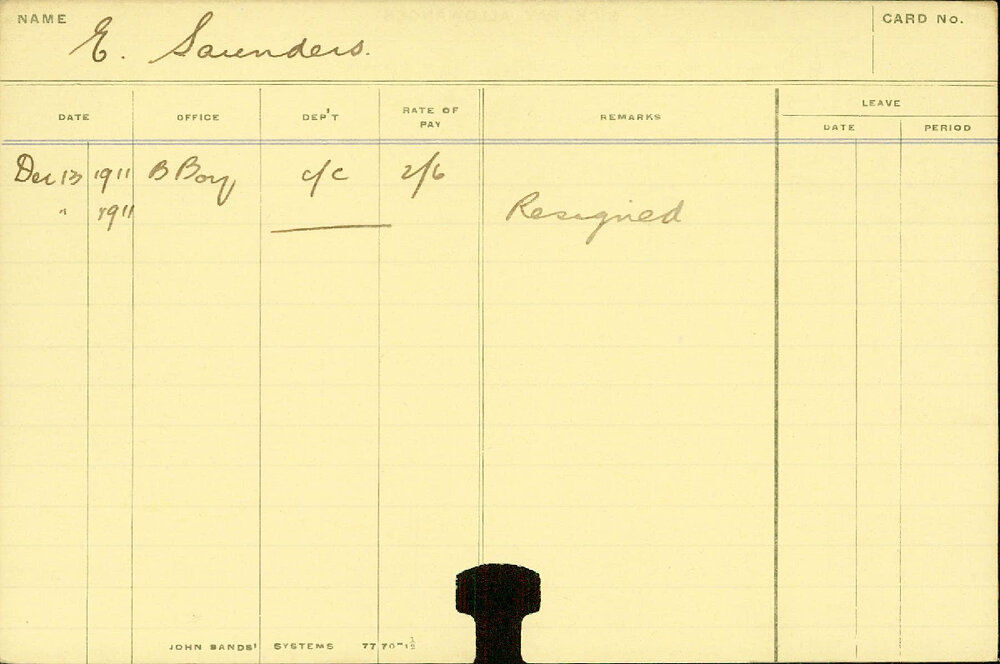 NAME E. Saunders. CARD No.
DATE OFFICE DEP'T RATE OF PAY REMARKS LEAVE
DATE PERIOD
Dec 13 1911 B Boy c/c 2/6
" 1911 Resigned
JOHN SANDS' SYSTEMS 77 70